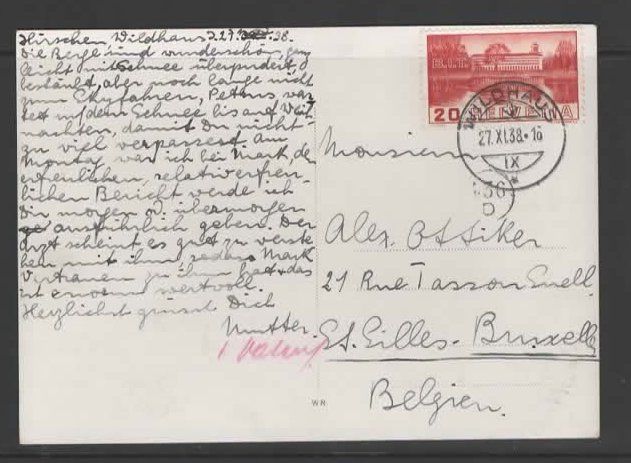 Hirschen, Wildhaus, 27. 38.
Die Berge sind wunderschön, ganz
leicht mit Schnee überpudert,
aber noch lange nicht
zum Skyfahren, Petrus war
tet mit dem Schnee bis auf Weih
nachten, damit Du nicht
zu viel verpasst. Am
Montag war ich bei Mark, den
erfreulichen, relativ erfreu-
lichen Bericht werde ich
Dir morgen od. übermorgen
ausführlich geben. Der
Arzt scheint es gut zu verste
hen mit ihm, sodass Mark
Vertrauen zu ihm hat & das
ist enorm wertvoll.
Herzlichst grüsst Dich
Mutter.
B.I.T.
20 HELVETIA
WILDHAUS
27.XI.38-16
IX
Monsieur
Alex. Ottiker
21 Rue Tasson Snell.
St. Gilles - Bruxelles
Belgien.
WR